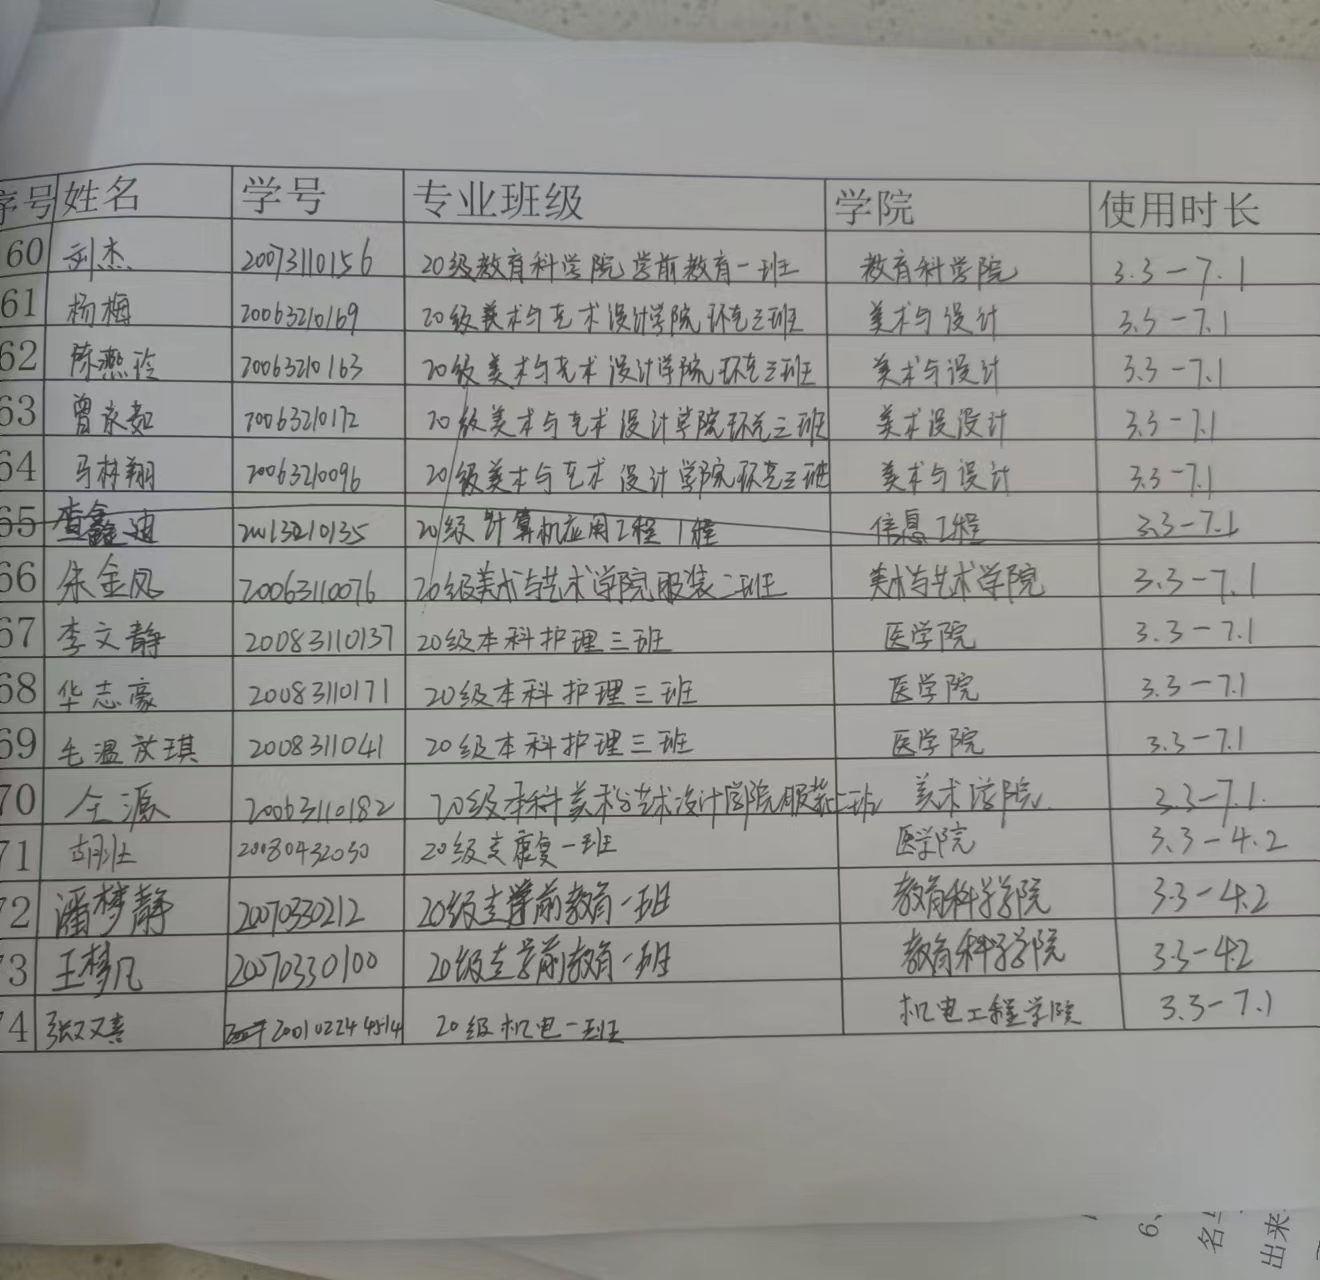 序号 姓名 学号 专业班级 学院 使用时长
60 刘杰 20073110156 20级教育科学院学前教育一班 教育科学院 3.3-7.1
61 杨梅 20063210169 20级美术与艺术设计学院环艺三班 美术与设计 3.3-7.1
62 陈燕玲 20063210163 20级美术与艺术设计学院环艺三班 美术与设计 3.3-7.1
63 曾永 20063210172 20级美术与艺术设计学院环艺三班 美术设设计 3.3-7.1
64 马林翔 20063210096 20级美术与艺术设计学院环艺三班 美术与设计 3.3-7.1
65 查鑫迪 20013210135 20级计算机应用工程1程 信息工程 3.3-7.1
66 朱金凤 20063110076 20级美术与艺术学院服装二班 美术与艺术学院 3.3-7.1
67 李文静 20083110137 20级本科护理三班 医学院 3.3-7.1
68 华志豪 20083110171 20级本科护理三班 医学院 3.3-7.1
69 毛温放琪 2008311041 20级本科护理三班 医学院 3.3-7.1
70 全源 20063110182 20级本科美术与艺术设计学院服装二班 美术学院 3.3-7.1
71 胡壮 20080432030 20级专康复一班 医学院 3.3-4.2
72 潘梦静 20070330212 20级专学前教育一班 教育科学学院 3.3-4.2
73 王梦凡 20070330100 20级专学前教育一班 教育科学学院 3.3-42
74 张又喜 20级机电一班 机电工程学院 3.3-7.1
6、
出来